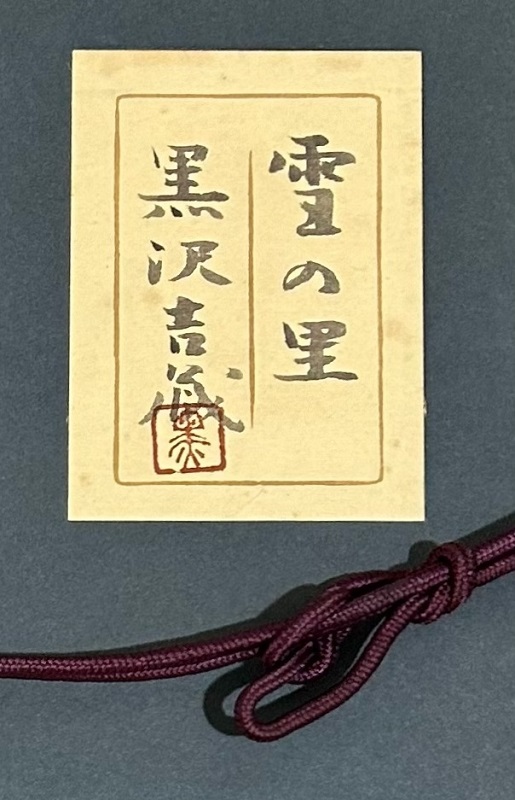 雪の里
黒沢吉蔵